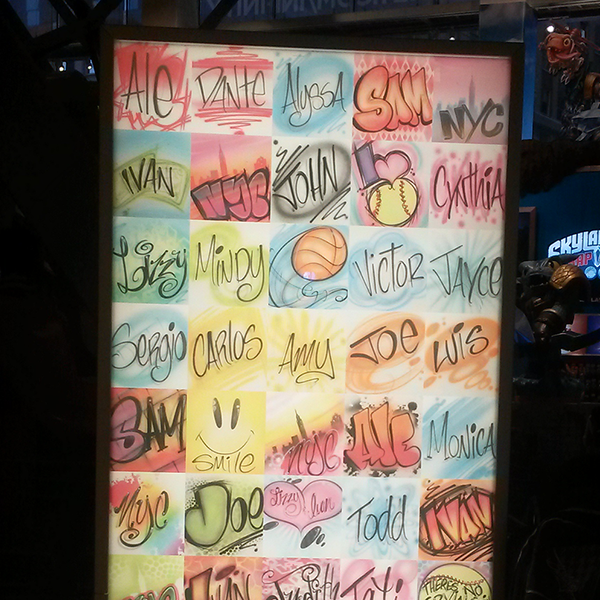 Ale Dante Alyssa SAM NYC
IVAN NYC JOHN I Cynthia
Lizzy Mindy Victor Jayce
Sergio Carlos Amy Joe Luis
SAM smile NYC Ale Monica
Nyc Joe Lizzy Todd IVAN
Judith Tati THERE'S NO
SKYLA